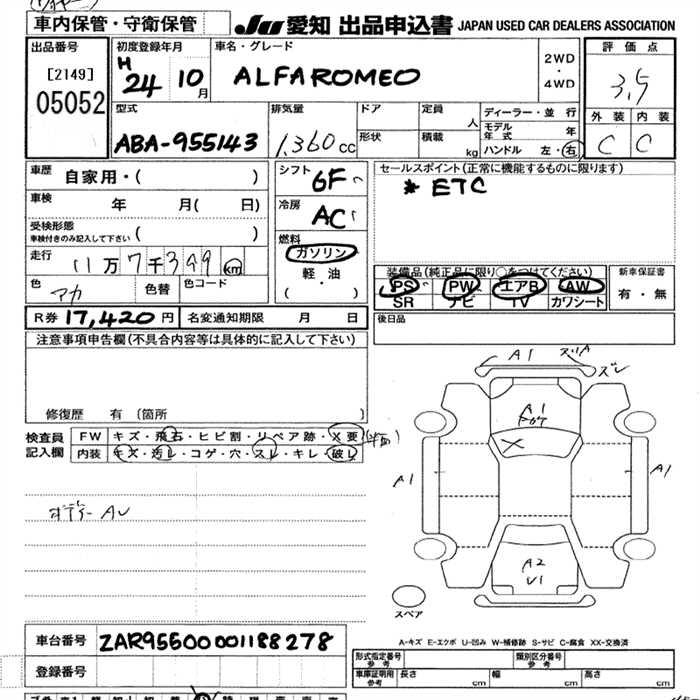 車内保管・守衛保管
JU 愛知 出品申込書 JAPAN USED CAR DEALERS ASSOCIATION
出品番号
[2149]
05052
初度登録年月
H 24 10月
車名・グレード
ALFAROMEO
2WD
・
4WD
評価点
3.5
外装 内装
C C
型式
ABA-955143
排気量
1,360 cc
ドア
形状
定員
人
積載
kg
ディーラー・並行
モデル年式 年
ハンドル 左・右
車歴 自家用・( )
車検 年 月( 日)
受検形態
車検付きのみ記入して下さい ( )
走行 11万7千399 km
色 アカ
色替
色コード
シフト
6F
冷房
AC
燃料
ガソリン
軽・油
( )
セールスポイント(正常に機能するものに限ります)
* ETC
装備品(純正品に限り○をつけてください)
PS PW エアB AW
SR ナビ TV カワシート
新車保証書
有・無
R券 17,420円
名変通知期限 月 日
後日品
注意事項申告欄(不具合内容等は具体的に記入して下さい)
修復歴 有(箇所 )
検査員記入欄
FW キズ・飛石・ヒビ割・リペア跡・X要
内装 キズ・汚レ・コゲ・穴・スレ・キレ・破レ
ボデー AU
A1
ズレ
A1
A1
A1
A2
U1
スペア
A-キズ E-エクボ U-凹み W-補修跡 S-サビ C-腐食 XX-交換済
車台番号 ZAR95500001188278
登録番号
形式指定番号
参考
類別区分番号
参考
車庫証明用
参考
長さ cm
幅 cm
高さ cm